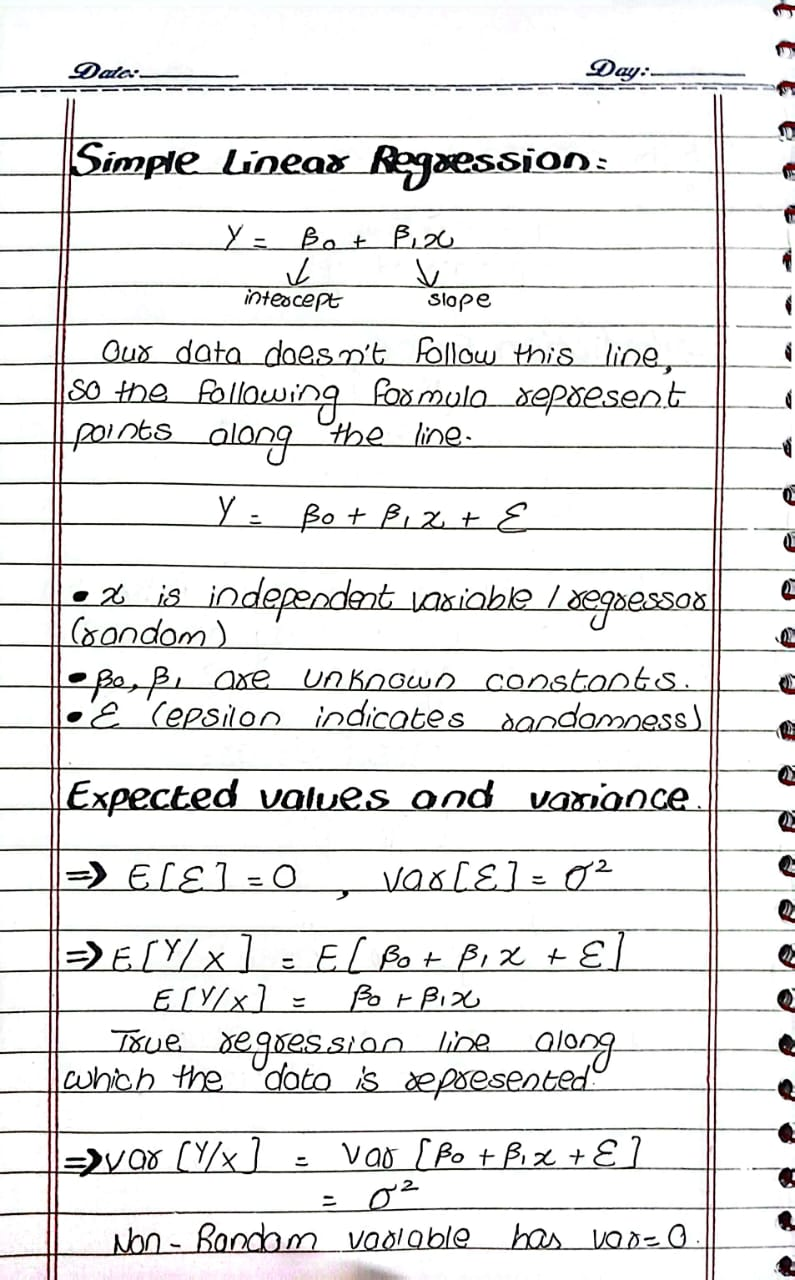 Date: Day:
Simple Linear Regression:
Y = β₀ + β₁x
intercept slope
Our data doesn't follow this line,
so the following formula represent
points along the line.
Y = β₀ + β₁x + ε
• x is independent variable / regressor
(random)
• β₀, β₁ are unknown constants.
• ε (epsilon indicates randomness)
Expected values and variance.
⇒ E[ε] = 0 , var[ε] = σ²
⇒ E[Y/x] = E[β₀ + β₁x + ε]
E[Y/x] = β₀ + β₁x
True regression line along
which the data is represented.
⇒ var [Y/x] = var [β₀ + β₁x + ε]
= σ²
Non-Random variable has var=0.